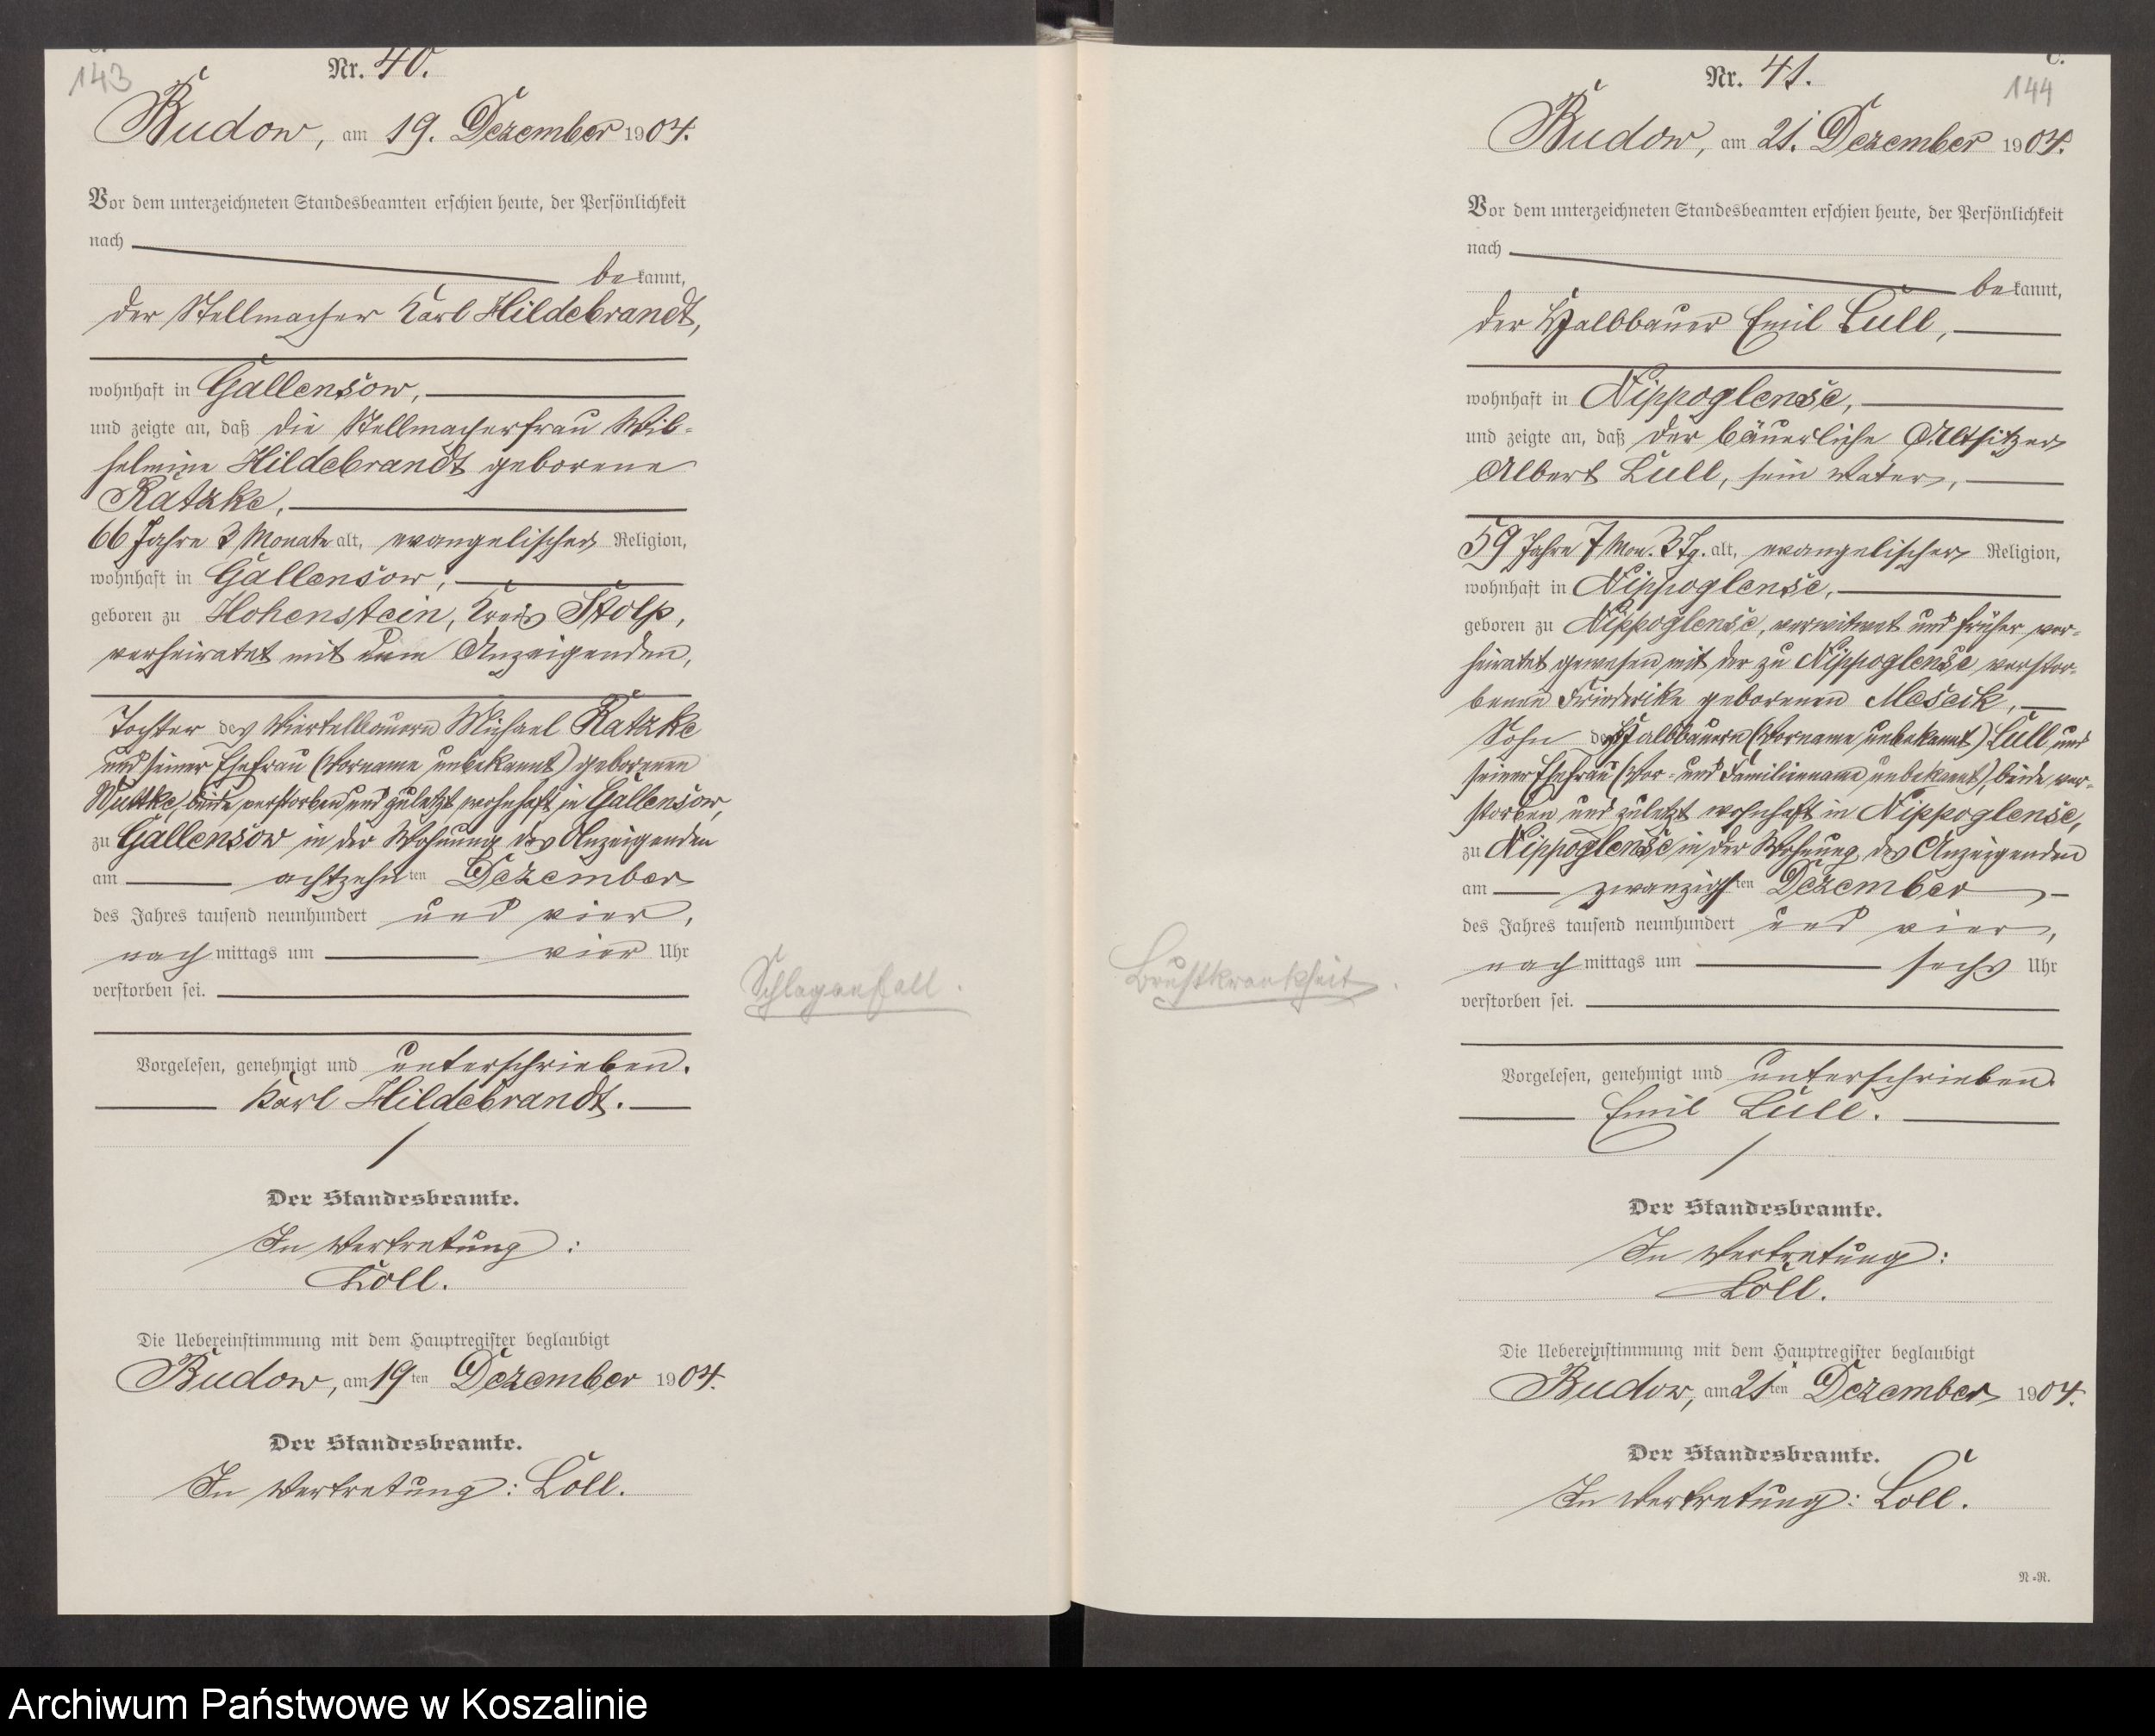 143
C.
Nr. 40.
Budow, am 19. Dezember 1904.
Vor dem unterzeichneten Standesbeamten erschien heute, der Persönlichkeit
nach
bekannt,
der Stellmacher Karl Hildebrandt,
wohnhaft in Gallensow,
und zeigte an, daß die Stellmacherfrau Wil-
helmine Hildebrandt geborene
Ratzke,
66 Jahre 3 Monate alt, evangelischer Religion,
wohnhaft in Gallensow,
geboren zu Hohenstein, Kreis Stolp,
verheiratet mit dem Anzeigenden,
Tochter des Viertelbauern Michael Ratzke
und seiner Ehefrau (Vorname unbekannt) geborenen
Nuttke, beide verstorben und zuletzt wohnhaft in Gallensow,
zu Gallensow in der Wohnung des Anzeigenden
am achtzehnten Dezember
des Jahres tausend neunhundert und vier,
nachmittags um vier Uhr
verstorben sei.
Schlaganfall.
Vorgelesen, genehmigt und unterschrieben.
Karl Hildebrandt.
Der Standesbeamte.
In Vertretung:
Loll.
Die Uebereinstimmung mit dem Hauptregister beglaubigt
Budow, am 19ten Dezember 1904.
Der Standesbeamte.
In Vertretung: Loll.
C.
144
Nr. 41.
Budow, am 21. Dezember 1904.
Vor dem unterzeichneten Standesbeamten erschien heute, der Persönlichkeit
nach
bekannt,
der Halbbauer Emil Lull,
wohnhaft in Nippoglense,
und zeigte an, daß der bäuerliche Altsitzer
Albert Lull, sein Vater,
59 Jahre 7 Mon. 3 Tg. alt, evangelischer Religion,
wohnhaft in Nippoglense,
geboren zu Nippoglense, verwitwet und früher ver-
heiratet gewesen mit der zu Nippoglense verstor-
benen Friederike geborenen Meseik,
Sohn des Halbbauern (Vorname unbekannt) Lull und
seiner Ehefrau (Vor- und Familienname unbekannt), beide ver-
storben und zuletzt wohnhaft in Nippoglense,
zu Nippoglense in der Wohnung des Anzeigenden
am zwanzigsten Dezember
des Jahres tausend neunhundert und vier,
nachmittags um sechs Uhr
verstorben sei.
Brustkrankheit.
Vorgelesen, genehmigt und unterschrieben.
Emil Lull.
Der Standesbeamte.
In Vertretung:
Loll.
Die Uebereinstimmung mit dem Hauptregister beglaubigt
Budow, am 21ten Dezember 1904.
Der Standesbeamte.
In Vertretung: Loll.
N-N.
Archiwum Państwowe w Koszalinie